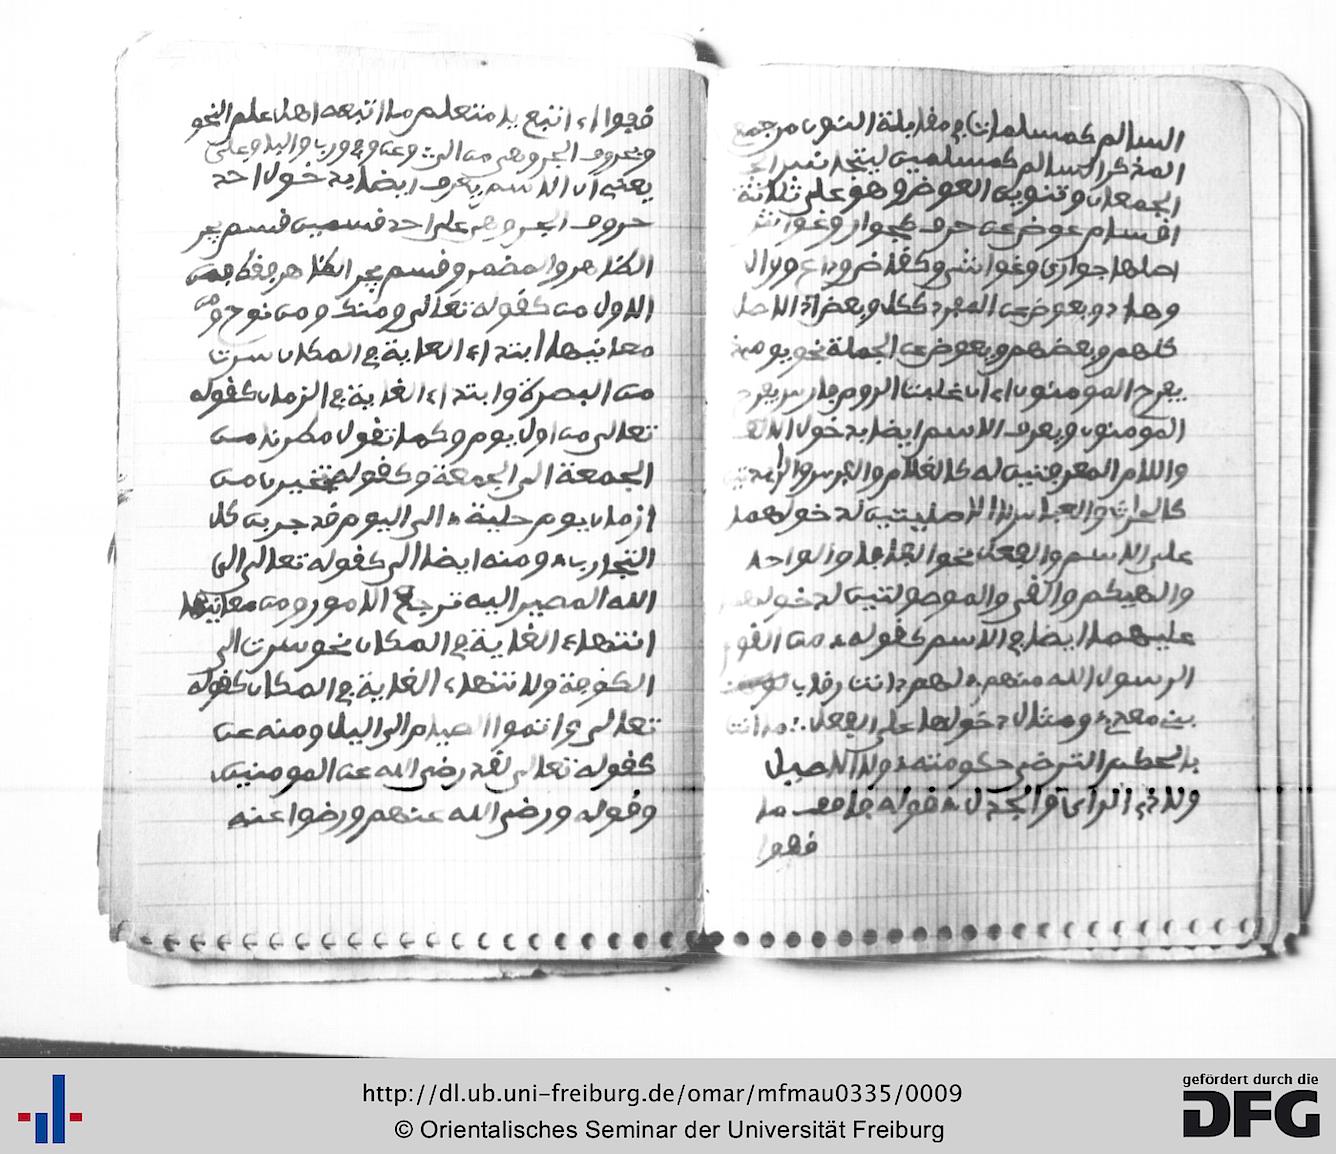 السالم كمسلمات في مقابلة النون من جمع
المذكر السالم كمسلمين ليتحد
الجمعان وتنوين العوض وهو على ثلاثة
اقسام عوض عن حرف كجوار وغواش
اصلها جواري وغواشي وكقاض وداع ووال
وهاد وبعوض عن المفرد ككل وبعض اذ الاصل
كلهم وبعضهم وبعوض عن الجملة نحو يومئذ
يفرح المومنون اي ان غلبت الروم فارس يفرح
المومنون ويعرف الاسم ايضا بدخول
واللام المعرفتين له كالغلام والفرس
كالحارث والعباس لا الاصليتين لدخولهما
على الاسم والفعل نحو الواحد
والهيكم والموصولتين لدخولهما
عليهما ايضا في الاسم كقوله من القوم
الرسول الله منهم لهم دانت رقاب
بني معد ومثال دخولها على الفعل ما انت
بالحكم الترضى حكومته ولا الاصيل
ولا ذي الراي والجدل قوله
فهوا
فهوا اي اتبع يا متعلم ما اتبعه اهل علم النحو
وبحروف الجر وهي من الى وعن وفي ورب والبا وعلى
يعني ان الاسم يعرف ايضا بدخول احد
حروف الجر وهي على احد قسمين قسم يجر
الظاهر والمضمر وقسم يجر الظاهر فقط فمن
الاول من كقوله تعالى ومنك ومن نوح ومن
معانيها ابتداء الغاية في المكان سرت
من البصرة وابتداء الغاية في الزمان كقوله
تعالى من اول يوم وكما تقول مطرنا من
الجمعة الى الجمعة وكقوله تخيرن من
ازمان يوم حليمة الى اليوم قد جربن كل
التجارب ومنه ايضا الى كقوله تعالى الى
الله المصير اليه ترجع الامور ومن معانيها
انتهاء الغاية في المكان نحو سرت الى
الكوفة ولانتهاء الغاية في المكان كقوله
تعالى واتموا الصيام الى اليل ومنه عن
كقوله تعالى لقد رضي الله عن المومنين
وقوله ورضي الله عنهم ورضوا عنه
http://dl.ub.uni-freiburg.de/omar/mfmau0335/0009
© Orientalisches Seminar der Universität Freiburg
gefördert durch die
DFG